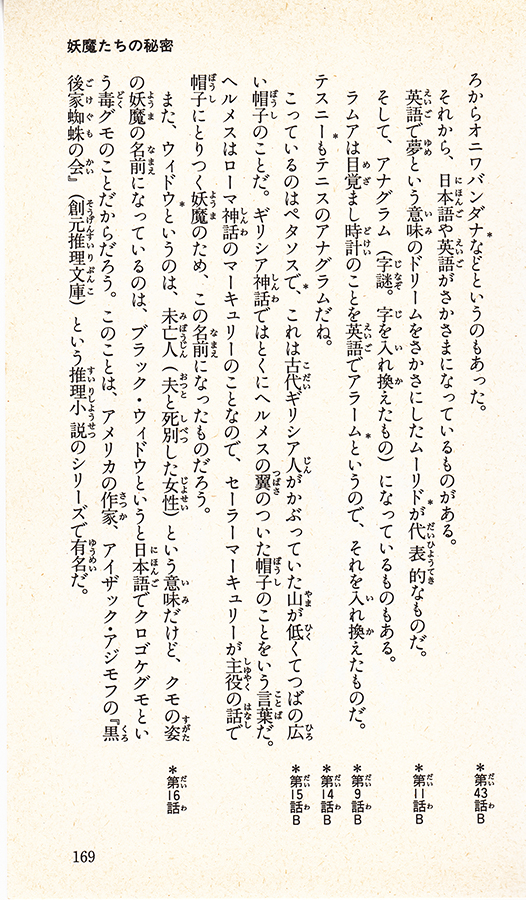 妖魔たちの秘密
ろからオニワバンダナ*などというのもあった。
それから、日本語や英語がさかさまになっているものがある。
英語で夢という意味のドリームをさかさにしたムーリド*が代表的なものだ。
そして、アナグラム（字謎。字を入れ換えたもの）になっているものもある。
ラムアは目覚まし時計のことを英語でアラーム*というので、それを入れ換えたものだ。
テスニー*もテニスのアナグラムだね。
こっているのはペタソス*で、これは古代ギリシア人がかぶっていた山が低くてつばの広
い帽子のことだ。ギリシア神話ではとくにヘルメスの翼のついた帽子のことをいう言葉だ。
ヘルメスはローマ神話のマーキュリーのことなので、セーラーマーキュリーが主役の話で
帽子にとりつく妖魔のため、この名前になったものだろう。
また、ウィドウ*というのは、未亡人（夫と死別した女性）という意味だけど、クモの姿
の妖魔の名前になっているのは、ブラック・ウィドウというと日本語でクロゴケグモとい
う毒グモのことだからだろう。このことは、アメリカの作家、アイザック・アジモフの『黒
後家蜘蛛の会』（創元推理文庫）という推理小説のシリーズで有名だ。
*第43話B
*第11話B
*第9話B
*第14話B
*第15話B
*第16話
169